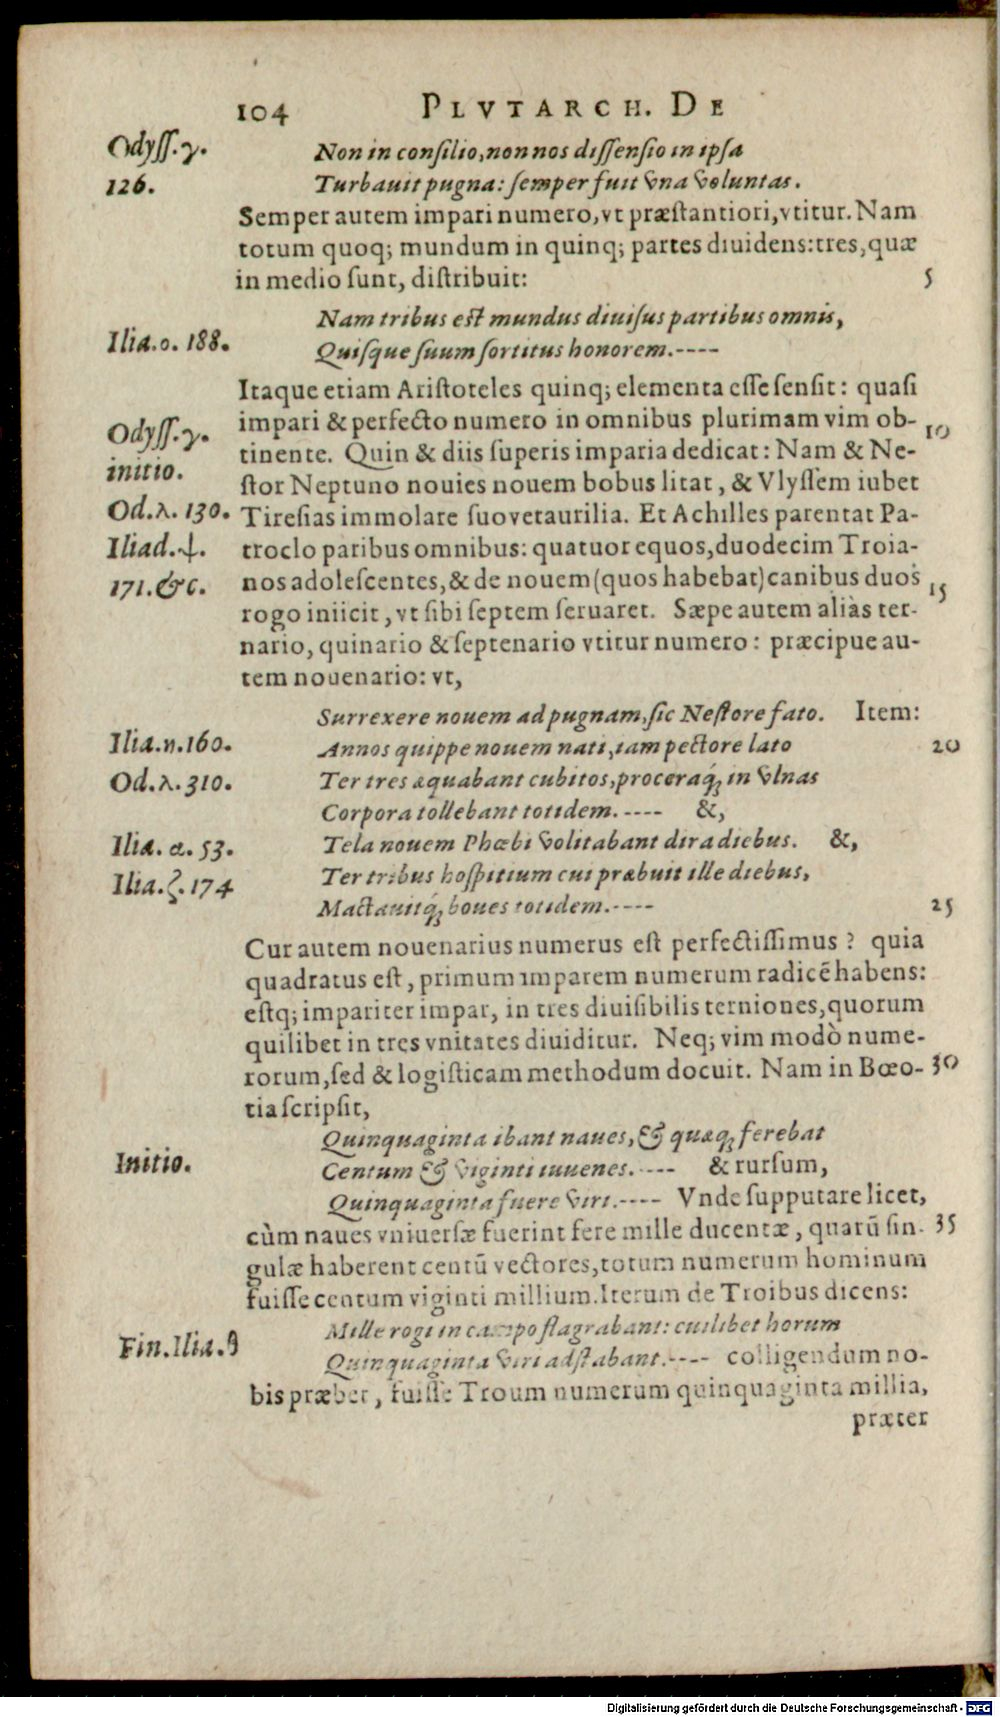 104 PLVTARCH. DE
Odyss. γ. Non in consilio, non nos dissensio in ipsa
126. Turbauit pugna: semper fuit vna voluntas.
Semper autem impari numero, vt præstantiori, vtitur. Nam
totum quoq; mundum in quinq; partes diuidens: tres, quæ
in medio sunt, distribuit: 5
Nam tribus est mundus diuisus partibus omnis,
Ilia. ο. 188. Quisque suum sortitus honorem.----
Itaque etiam Aristoteles quinq; elementa esse sensit: quasi
impari & perfecto numero in omnibus plurimam vim ob- 10
Odyss. γ. tinente. Quin & diis superis imparia dedicat: Nam & Ne-
initio. stor Neptuno nouies nouem bobus litat, & Vlyssem iubet
Od. λ. 130. Tiresias immolare suovetaurilia. Et Achilles parentat Pa-
Iliad. ψ. troclo paribus omnibus: quatuor equos, duodecim Troia-
171. &c. nos adolescentes, & de nouem (quos habebat) canibus duos 15
rogo iniicit, vt sibi septem seruaret. Sæpe autem aliàs ter-
nario, quinario & septenario vtitur numero: præcipue au-
tem nouenario: vt,
Surrexere nouem ad pugnam, sic Nestore fato. Item:
Ilia. η. 160. Annos quippe nouem nati, iam pectore lato 20
Od. λ. 310. Ter tres æquabant cubitos, proceraq́; in vlnas
Corpora tollebant totidem.---- &,
Ilia. α. 53. Tela nouem Phœbi volitabant dira diebus. &,
Ilia. ζ. 174 Ter tribus hospitium cui præbuit ille diebus,
Mactauitq́; boues totidem.---- 25
Cur autem nouenarius numerus est perfectissimus? quia
quadratus est, primum imparem numerum radicē habens:
estq; impariter impar, in tres diuisibilis terniones, quorum
quilibet in tres vnitates diuiditur. Neq; vim modò nume-
rorum, sed & logisticam methodum docuit. Nam in Bœo- 30
tia scripsit,
Quinquaginta ibant naues, & quæq; ferebat
Initio. Centum & viginti iuuenes.---- & rursum,
Quinquaginta fuere viri.---- Vnde supputare licet,
cùm naues vniuersæ fuerint fere mille ducentæ, quarū sin- 35
gulæ haberent centū vectores, totum numerum hominum
fuisse centum viginti millium. Iterum de Troibus dicens:
Mille rogi in campo flagrabant: cuilibet horum
Fin. Ilia. θ Quinquaginta viri adstabant.---- colligendum no-
bis præbet, fuisse Troum numerum quinquaginta millia,
præter
Digitalisierung gefördert durch die Deutsche Forschungsgemeinschaft - DFG